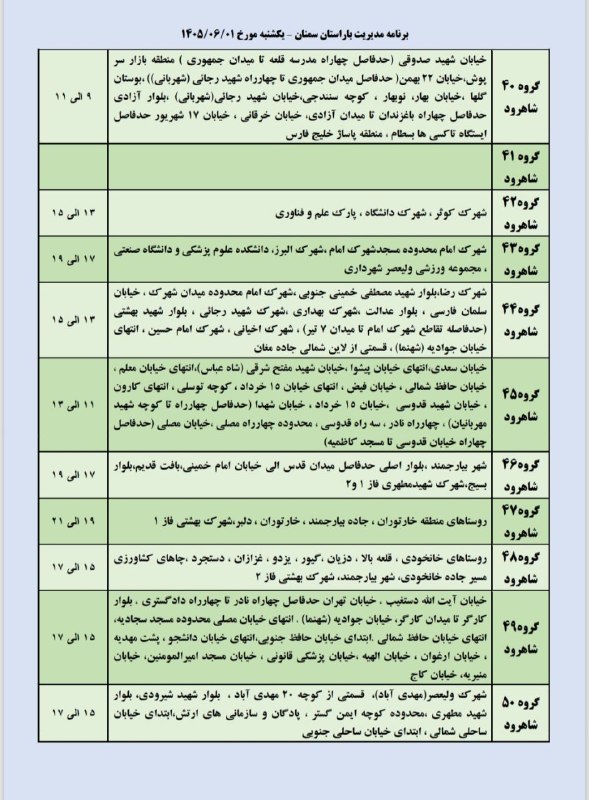 برنامه مدیریت باراستان سمنان - یکشنبه مورخ ۱۴۰۵/۰۶/۰۱
گروه ۴۰ شاهرود
خیابان شهید صدوقی (حدفاصل چهاراه مدرسه قلعه تا میدان جمهوری ) منطقه بازار سر
پوش،خیابان ۲۲ بهمن( حدفاصل میدان جمهوری تا چهارراه شهید رجائی (شهربانی))،بوستان
گلها ،خیابان بهار، نوبهار ، کوچه سنندجی،خیابان شهید رجائی(شهربانی) ،بلوار آزادی
حدفاصل چهاراه باغزندان تا میدان آزادی، خیابان خرقانی ، خیابان ۱۷ شهریور حدفاصل
ایستگاه تاکسی ها بسطام ، منطقه پاساژ خلیج فارس
۹ الی ۱۱
گروه ۴۱
شاهرود
گروه۴۲
شاهرود
شهرک کوثر ، شهرک دانشگاه ، پارک علم و فناوری
۱۳ الی ۱۵
گروه۴۳
شاهرود
شهرک امام محدوده مسجدشهرک امام ،شهرک البرز، دانشکده علوم پزشکی و دانشگاه صنعتی
، مجموعه ورزشی ولیعصر شهرداری
۱۷ الی ۱۹
گروه۴۴
شاهرود
شهرک رضا،بلوار شهید مصطفی خمینی جنوبی،شهرک امام محدوده میدان شهرک ، خیابان
سلمان فارسی ، بلوار عدالت ،شهرک بهداری ،شهرک شهید رجائی ، بلوار شهید بهشتی
(حدفاصله تقاطع شهرک امام تا میدان ۷ تیر) ، شهرک اخیانی ، شهرک امام حسین ، انتهای
خیابان جوادیه (شهنما) ، قسمتی از لاین شمالی جاده مغان
۱۳ الی ۱۵
گروه۴۵
شاهرود
خیابان سعدی،انتهای خیابان پیشوا ،خیابان شهید مفتح شرقی (شاه عباس)،انتهای خیابان معلم ،
خیابان حافظ شمالی ، خیابان فیض ، انتهای خیابان ۱۵ خرداد ، کوچه توسلی ، انتهای کارون
، خیابان شهید قدوسی ،خیابان ۱۵ خرداد ، خیابان شهدا (حدفاصل چهارراه تا کوچه شهید
مهربانیان) ، چهارراه نادر ، سه راه قدوسی ، محدوده چهارراه مصلی ،خیابان مصلی (حدفاصل
چهاراه خیابان قدوسی تا مسجد کاظمیه)
۱۱ الی ۱۳
گروه۴۶
شاهرود
شهر بیارجمند ،بلوار اصلی حدفاصل میدان قدس الی خیابان امام خمینی،بافت قدیم،بلوار
بسیج،شهرک شهیدمطهری فاز ۱ و۲
۱۷ الی ۱۹
گروه۴۷
شاهرود
روستاهای منطقه خارتوران ، جاده بیارجمند ، خارتوران ، دلبر،شهرک بهشتی فاز ۱
۱۹ الی ۲۱
گروه۴۸
شاهرود
روستاهای خانخودی ، قلعه بالا ، دزیان ،گیور ، یزدو ، غزازان ، دستجرد ،چاهای کشاورزی
مسیر جاده خانخودی، شهر بیارجمند، شهرک بهشتی فاز ۲
۱۵ الی ۱۷
گروه۴۹
شاهرود
خیابان آیت الله دستغیب ، خیابان تهران حدفاصل چهاراه نادر تا چهارراه دادگستری ، بلوار
کارگر تا میدان کارگر، خیابان جوادیه (شهنما) ، انتهای خیابان مصلی محدوده مسجد سجادیه،
انتهای خیابان حافظ شمالی ،ابتدای خیابان حافظ جنوبی،انتهای خیابان دانشجو ، پشت مهدیه
، خیابان ارغوان ، خیابان الهیه ،خیابان پزشکی قانونی ، خیابان مسجد امیرالمومنین، خیابان
منیریه، خیابان کاج
۱۵ الی ۱۷
گروه ۵۰
شاهرود
شهرک ولیعصر(مهدی آباد)، قسمتی از کوچه ۲۰ مهدی آباد ، بلوار شهید شیرودی، بلوار
شهید مطهری ،محدوده کوچه ایمن گستر ، پادگان و سازمانی های ارتش،ابتدای خیابان
ساحلی شمالی ، ابتدای خیابان ساحلی جنوبی
۱۵ الی ۱۷